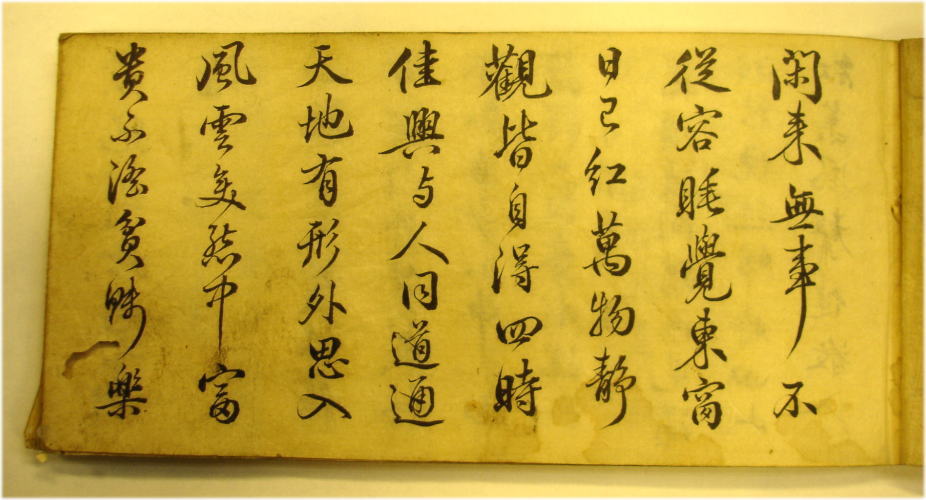 閑来無事不
從容睡覺東窗
日已紅萬物靜
觀皆自得四時
佳興与人同道通
天地有形外思入
風雲変態中富
貴不滛貧賎樂